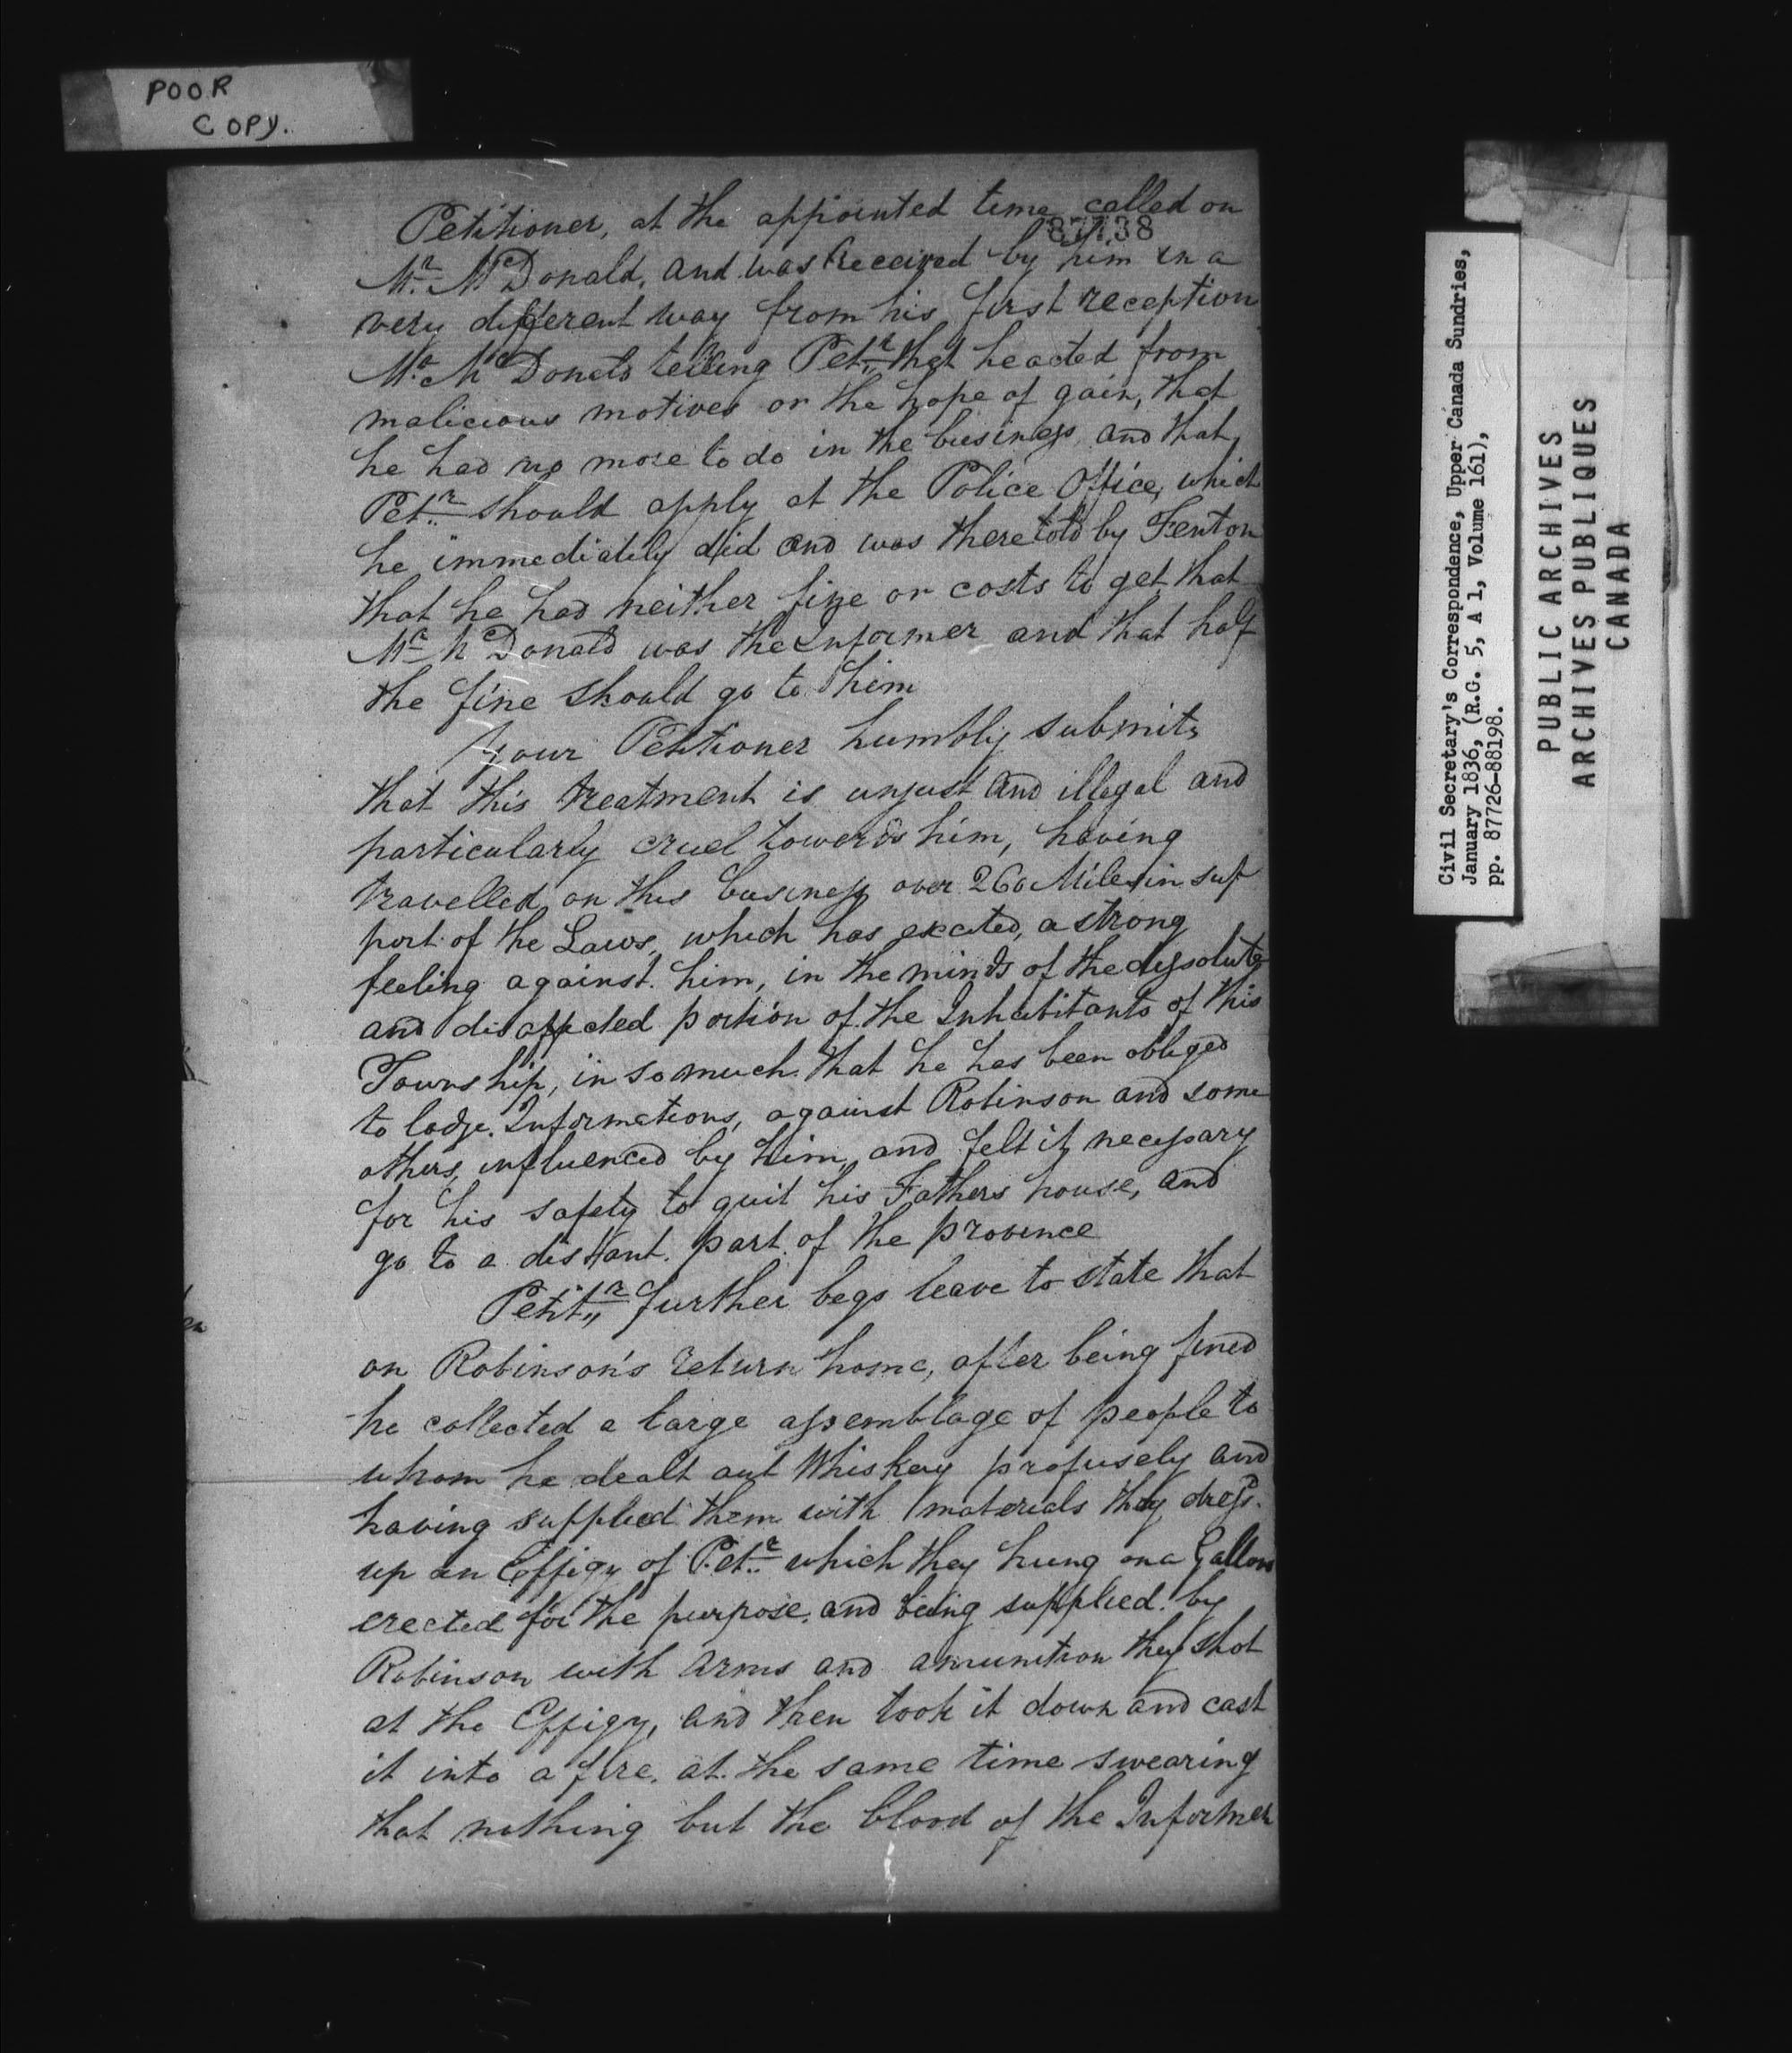 POOR
COPY.
Petitioner, at the appointed time called on
87738
Mr. McDonald, and was received by him in a
very different way from his first reception
Mr. McDonald telling Petr. that he acted from
malicious motives or the hope of gain, that
he had no more to do in the business and that
Petr. should apply at the Police Office, which
he immediately did and was there told by Fenton
that he had neither fine or costs to get, that
Mr. McDonald was the Informer and that half
the fine should go to him
Your Petitioner humbly submits
that this treatment is unjust and illegal and
particularly cruel towards him, having
travelled on this business over 260 Miles in sup
port of the Laws, which has excited, a strong
feeling against him, in the minds of the dissolute
and disaffected portion of the Inhabitants of this
Township, in so much that he has been obliged
to lodge Informations, against Robinson and some
others, influenced by him, and felt it necessary
for his safety to quit his Fathers house, and
go to a distant part of the province
Petitr. further begs leave to state that
on Robinson's return home, after being fined
he collected a large assemblage of people to
whom he dealt out Whiskey profusely and
having supplied them with materials they dress'd
up an Effigy of Petr. which they hung on a Gallows
erected for the purpose, and being supplied by
Robinson with arms and amunition they shot
at the Effigy, and then took it down and cast
it into a fire, at the same time swearing
that nothing but the blood of the Informer
Civil Secretary's Correspondence, Upper Canada Sundries,
January 1836, (R.G. 5, A 1, Volume 161),
pp. 87726-88198.
PUBLIC ARCHIVES
ARCHIVES PUBLIQUES
CANADA